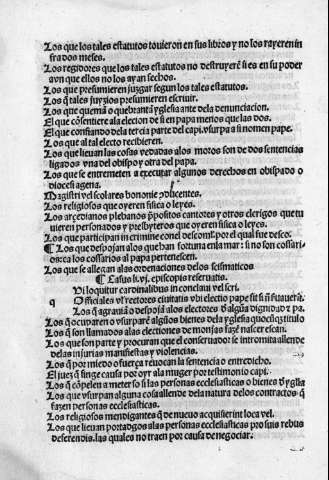 Los que los tales estatutos touieron en sus libros y no los rayeren in
fra dos meses.
Los regidores que los tales estatutos no destruyerē si es en su poder
avn que ellos no los ayan fechos.
Los que presumieren juzgar segun los tales estatutos.
Los q̄ tales juyzios presumieren escriuir.
Los que quemā o quebrantā yglesia ante dela denunciacion.
El que cōsentiere ala elecion de si en papa menos que las dos.
El que confiando dela tercia parte del capi. vsurpa a si nomen pape.
Los que al tal electo recibieren.
Los que lieuan las cosas vedadas alos moros son de dos sentencias
ligados vna del obispo y otra del papa.
Los que se entremeten a executar algunos derechos en obispado o
diocesi agena.
Magistri vel scolares bononie ꝯducentes.
Los religiosos que oyeren fisica o leyes.
Los arcedianos plebanos p̄positos cantores y otros clerigos que tu
uieren personados y presbyteros que oyeren fisica o leyes.
Los que participan in crimine conel descomulgado por el qual fue desco.
Los que despojan alos que han fortuna enla mar: si no son cossarios
ca los cossarios al papa pertenescen.
Los que se allegan alas ordenaciones delos scismaticos
Casus lvj. episcopis reseruatis.
Ui loquitur cardinalibus in conclaui vel scri.
q Officiales vel rectores ciuitatis vbi electio pape fit si nō fuauerīt.
Los q̄ agrauiā o despojā alos electores
Los q̄ ocuparen o vsurparē algūos bienes dela yglesia
Los q̄ son llamados alas elecciones de monjas fazē nascer escan.
Los que son parte y procuran que el conseruador se intromita allende
delas injurias manifiestas y violencias.
Los q̄ por miedo o fuerça reuocan la sentencia o entredicho.
El juez q̄ finge causa por oyr ala muger por testimonio capi.
Los q̄ cōpelen a meter so si las personas ecclesiasticas o bienes d̄ yglīa
Los que vsurpan alguna cosa allende dela natura delos contractos q̄
fazen personas ecclesiasticas.
Los religiosos mendigantes q̄ de nueuo acquisierint loca vel.
Los que lieuan portadgos alas personas ecclesiasticas pro suis rebus
deferendis. las quales no traen por causa de negociar.